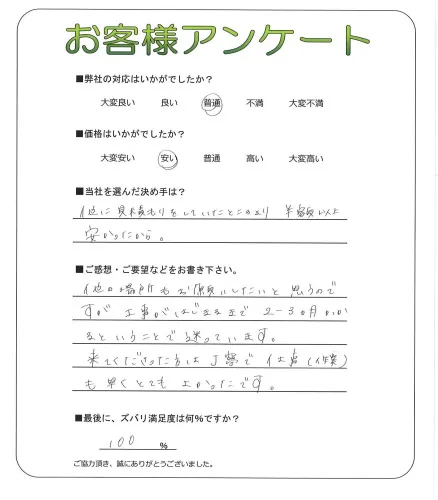 お客様アンケート
■弊社の対応はいかがでしたか？
大変良い　良い　普通　不満　大変不満
■価格はいかがでしたか？
大変安い　安い　普通　高い　大変高い
■当社を選んだ決め手は？
他に見積もりをしていたところより 半額以上
安かったから。
■ご感想・ご要望などをお書き下さい。
他の場所もお願いしたいと思うので
すが 工事がはじまるまで 2-3ヵ月かか
るということで迷っています。
来てくださった方は丁寧で仕事(作業)
も早くとてもよかったです。
■最後に、ズバリ満足度は何%ですか？
100 %
ご協力頂き、誠にありがとうございました。